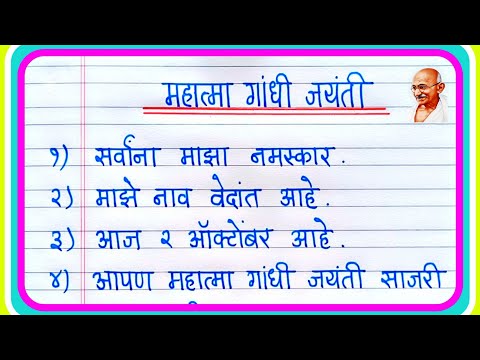 महात्मा गांधी जयंती
१) सर्वांना माझा नमस्कार .
२) माझे नाव वेदांत आहे .
३) आज २ ऑक्टोंबर आहे .
४) आपण महात्मा गांधी जयंती साजरी